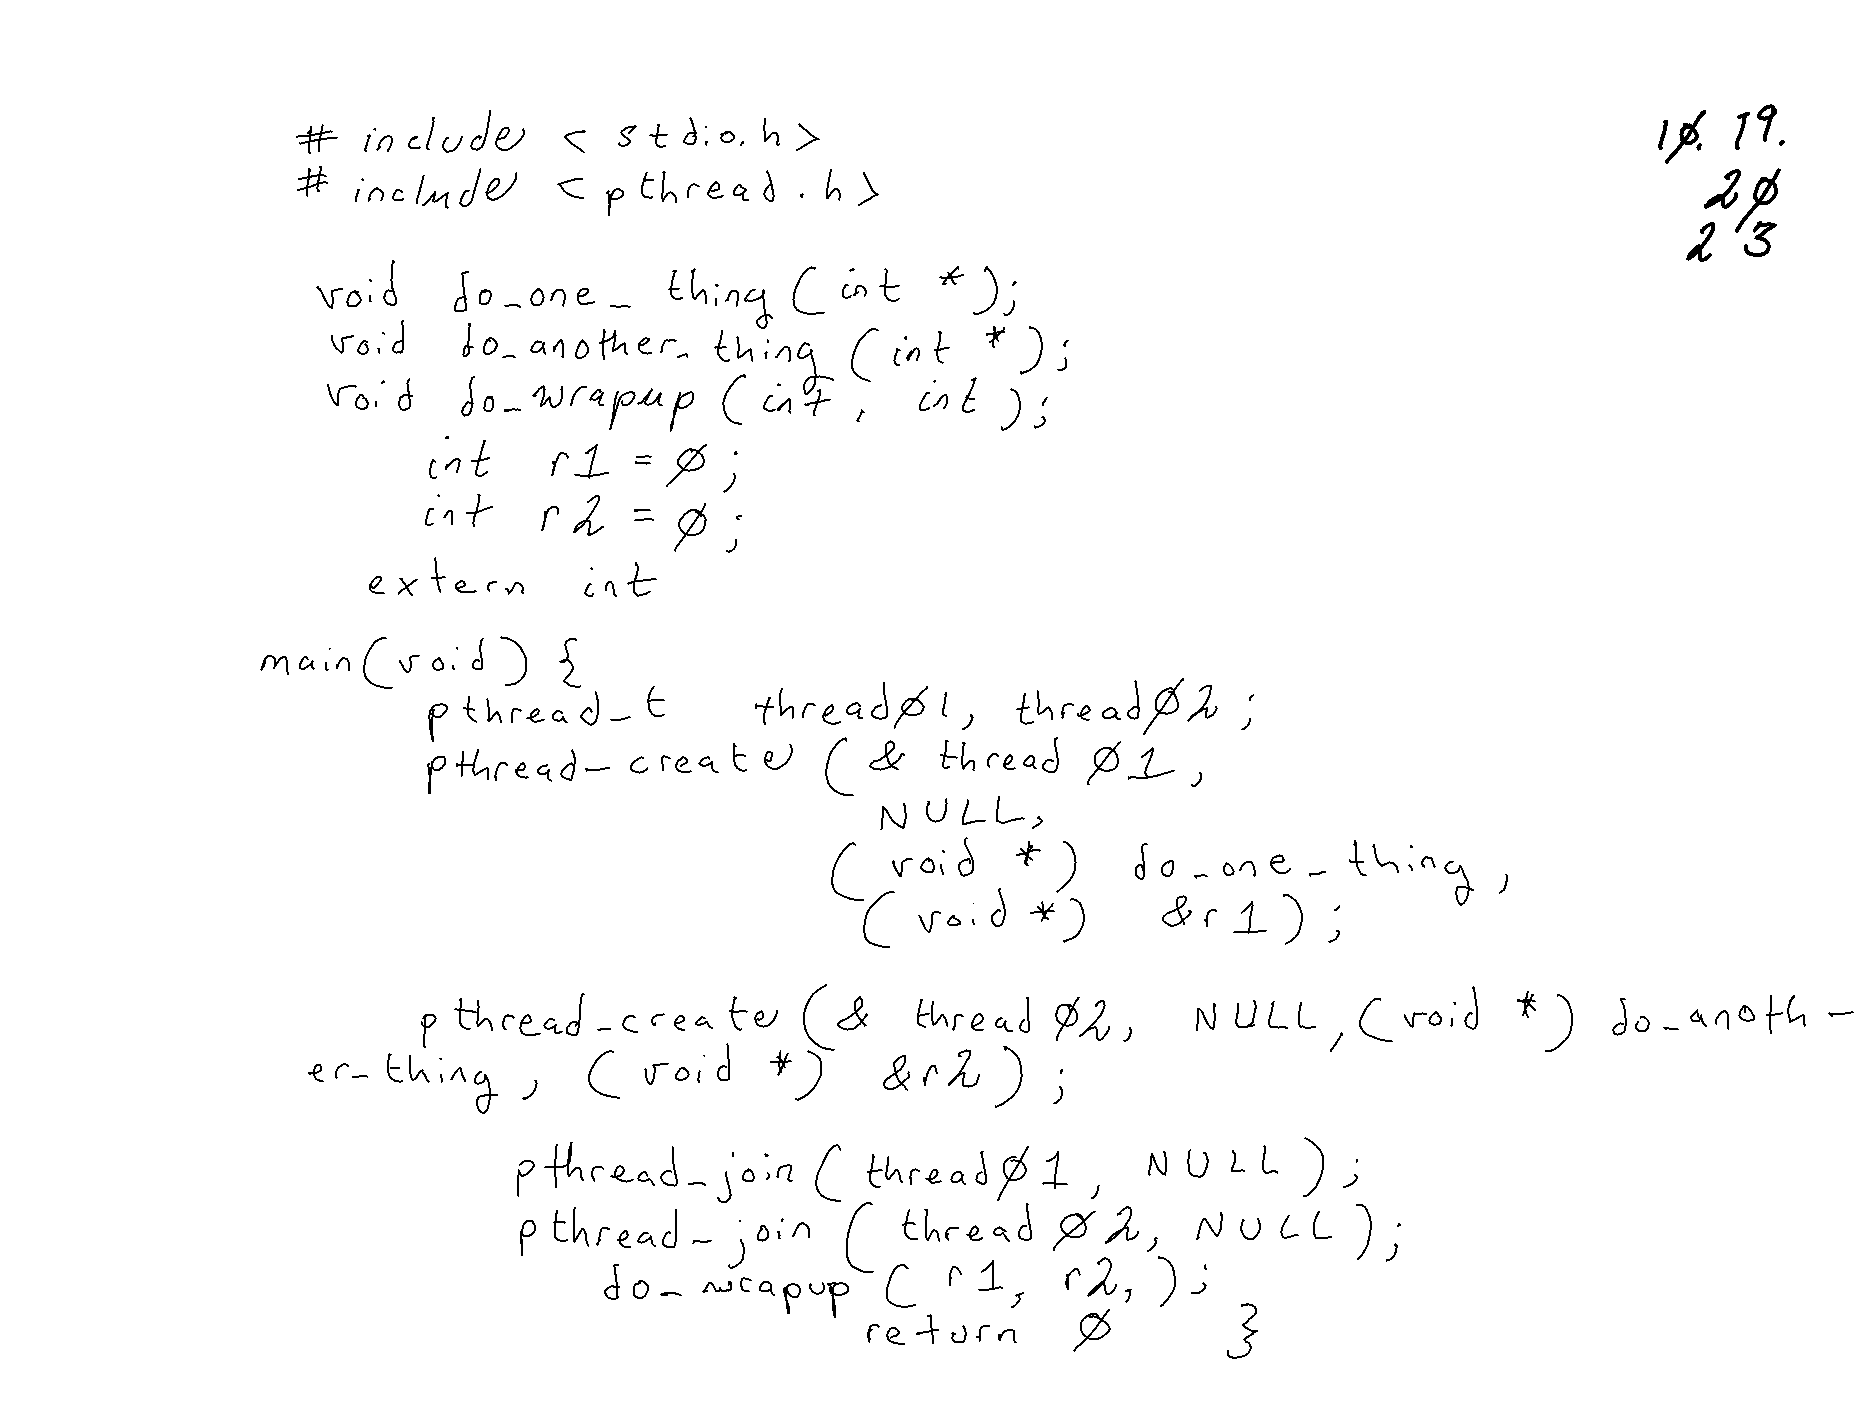 # include < stdio.h>
# include <pthread.h>
10.19.
20
23
void do_one_thing(int *);
void do_another_thing (int *);
void do_wrapup (int, int);
int r1 = 0;
int r2 = 0;
extern int
main(void) {
pthread_t thread01, thread02;
pthread_create (& thread 01,
NULL,
(void *) do_one_thing,
(void *) &r1);
pthread_create (& thread 02, NULL, (void *) do_anoth-
er_thing, (void *) &r2);
pthread_join ( thread01, NULL);
pthread_join ( thread 02, NULL);
do_wrapup ( r1, r2, );
return 0 }